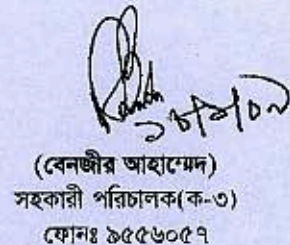 ১৮/৯/০৯
(বেনজীর আহাম্মেদ)
সহকারী পরিচালক(ক-৩)
ফোনঃ ৯৫৫৬০৫৭